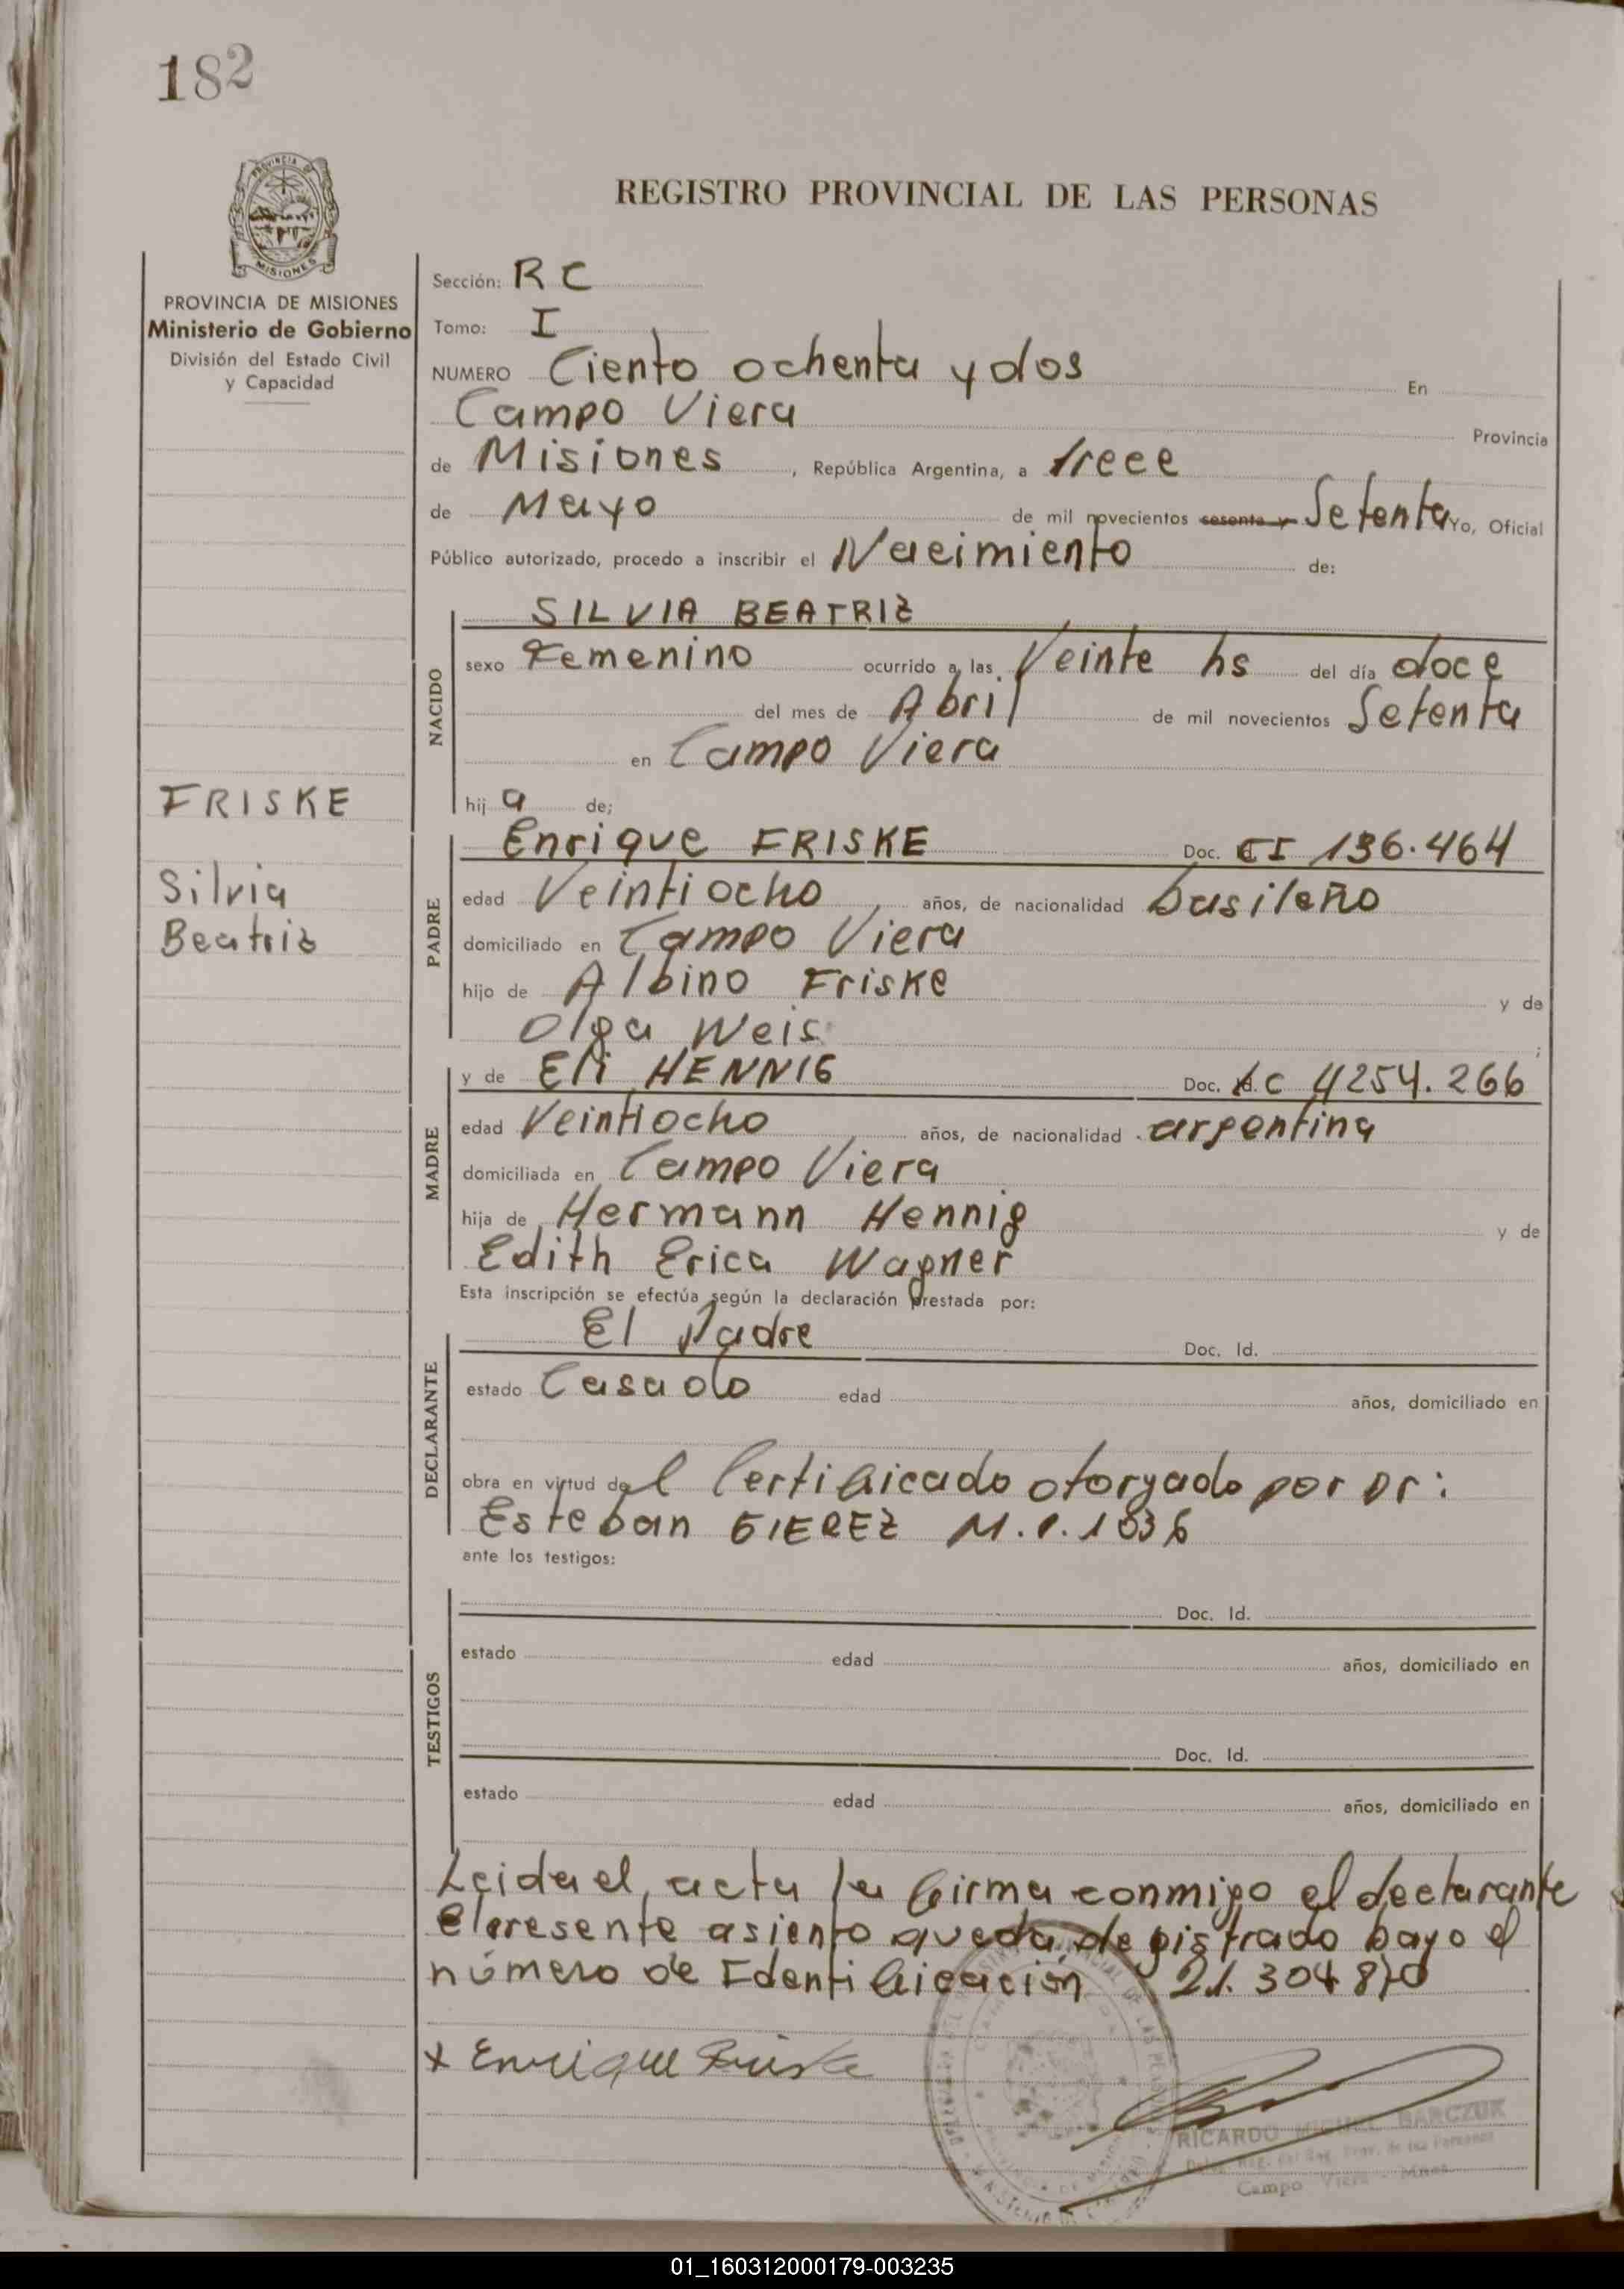 182
REGISTRO PROVINCIAL DE LAS PERSONAS
PROVINCIA DE MISIONES
Ministerio de Gobierno
División del Estado Civil
y Capacidad
FRISKE
Silvia
Beatriz
Sección: RC
Tomo: I
NUMERO Ciento ochenta y dos En
Campo Viera Provincia
de Misiones, República Argentina, a trece
de Mayo de mil novecientos sesenta y Setenta Yo, Oficial
Público autorizado, procedo a inscribir el Nacimiento de:
NACIDO
SILVIA BEATRIZ
sexo Femenino ocurrido a las Veinte hs del día doce
del mes de Abril de mil novecientos Setenta
en Campo Viera
hij a de;
PADRE
Enrique FRISKE Doc. CI 136.464
edad Veintiocho años, de nacionalidad basileño
domiciliado en Campo Viera
hijo de Albino Friske y de
Olga Weis ;
MADRE
y de Eli HENNIG Doc. LC 4254.266
edad Veintiocho años, de nacionalidad argentina
domiciliada en Campo Viera
hija de Hermann Hennig y de
Edith Erica Wagner
Esta inscripción se efectúa según la declaración prestada por:
DECLARANTE
El Padre Doc. Id.
estado Casado edad años, domiciliado en
obra en virtud del Certificado otorgado por Dr:
Esteban GIEREZ M.P. 1036
ante los testigos:
TESTIGOS
Doc. Id.
estado edad años, domiciliado en
Doc. Id.
estado edad años, domiciliado en
Leida el acta la firma conmigo el declarante
El presente asiento queda registrado bayo el
número de Identificación 21.304870
x Enrique Friske
RICARDO MIGUEL BARCZUK
Campo Viera - Mnes
01_160312000179-003235